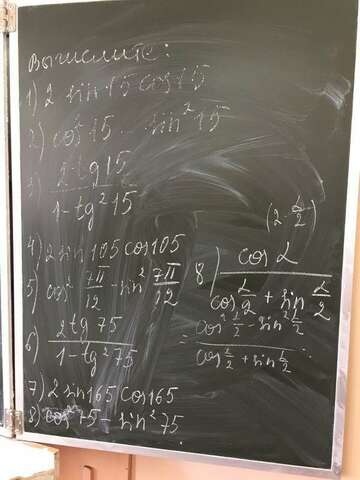 Вычислите:
1) 2 sin 15 cos 15
2) cos² 15 - sin² 15
3) 2 tg 15 / 1 - tg² 15
4) 2 sin 105 cos 105
5) cos² 7π/12 - sin² 7π/12
6) 2 tg 75 / 1 - tg² 75
7) 2 sin 165 cos 165
8) cos² 75 - sin² 75
(2 · α/2)
8) cos α / cos α/2 + sin α/2
= cos² α/2 - sin² α/2 / cos α/2 + sin α/2